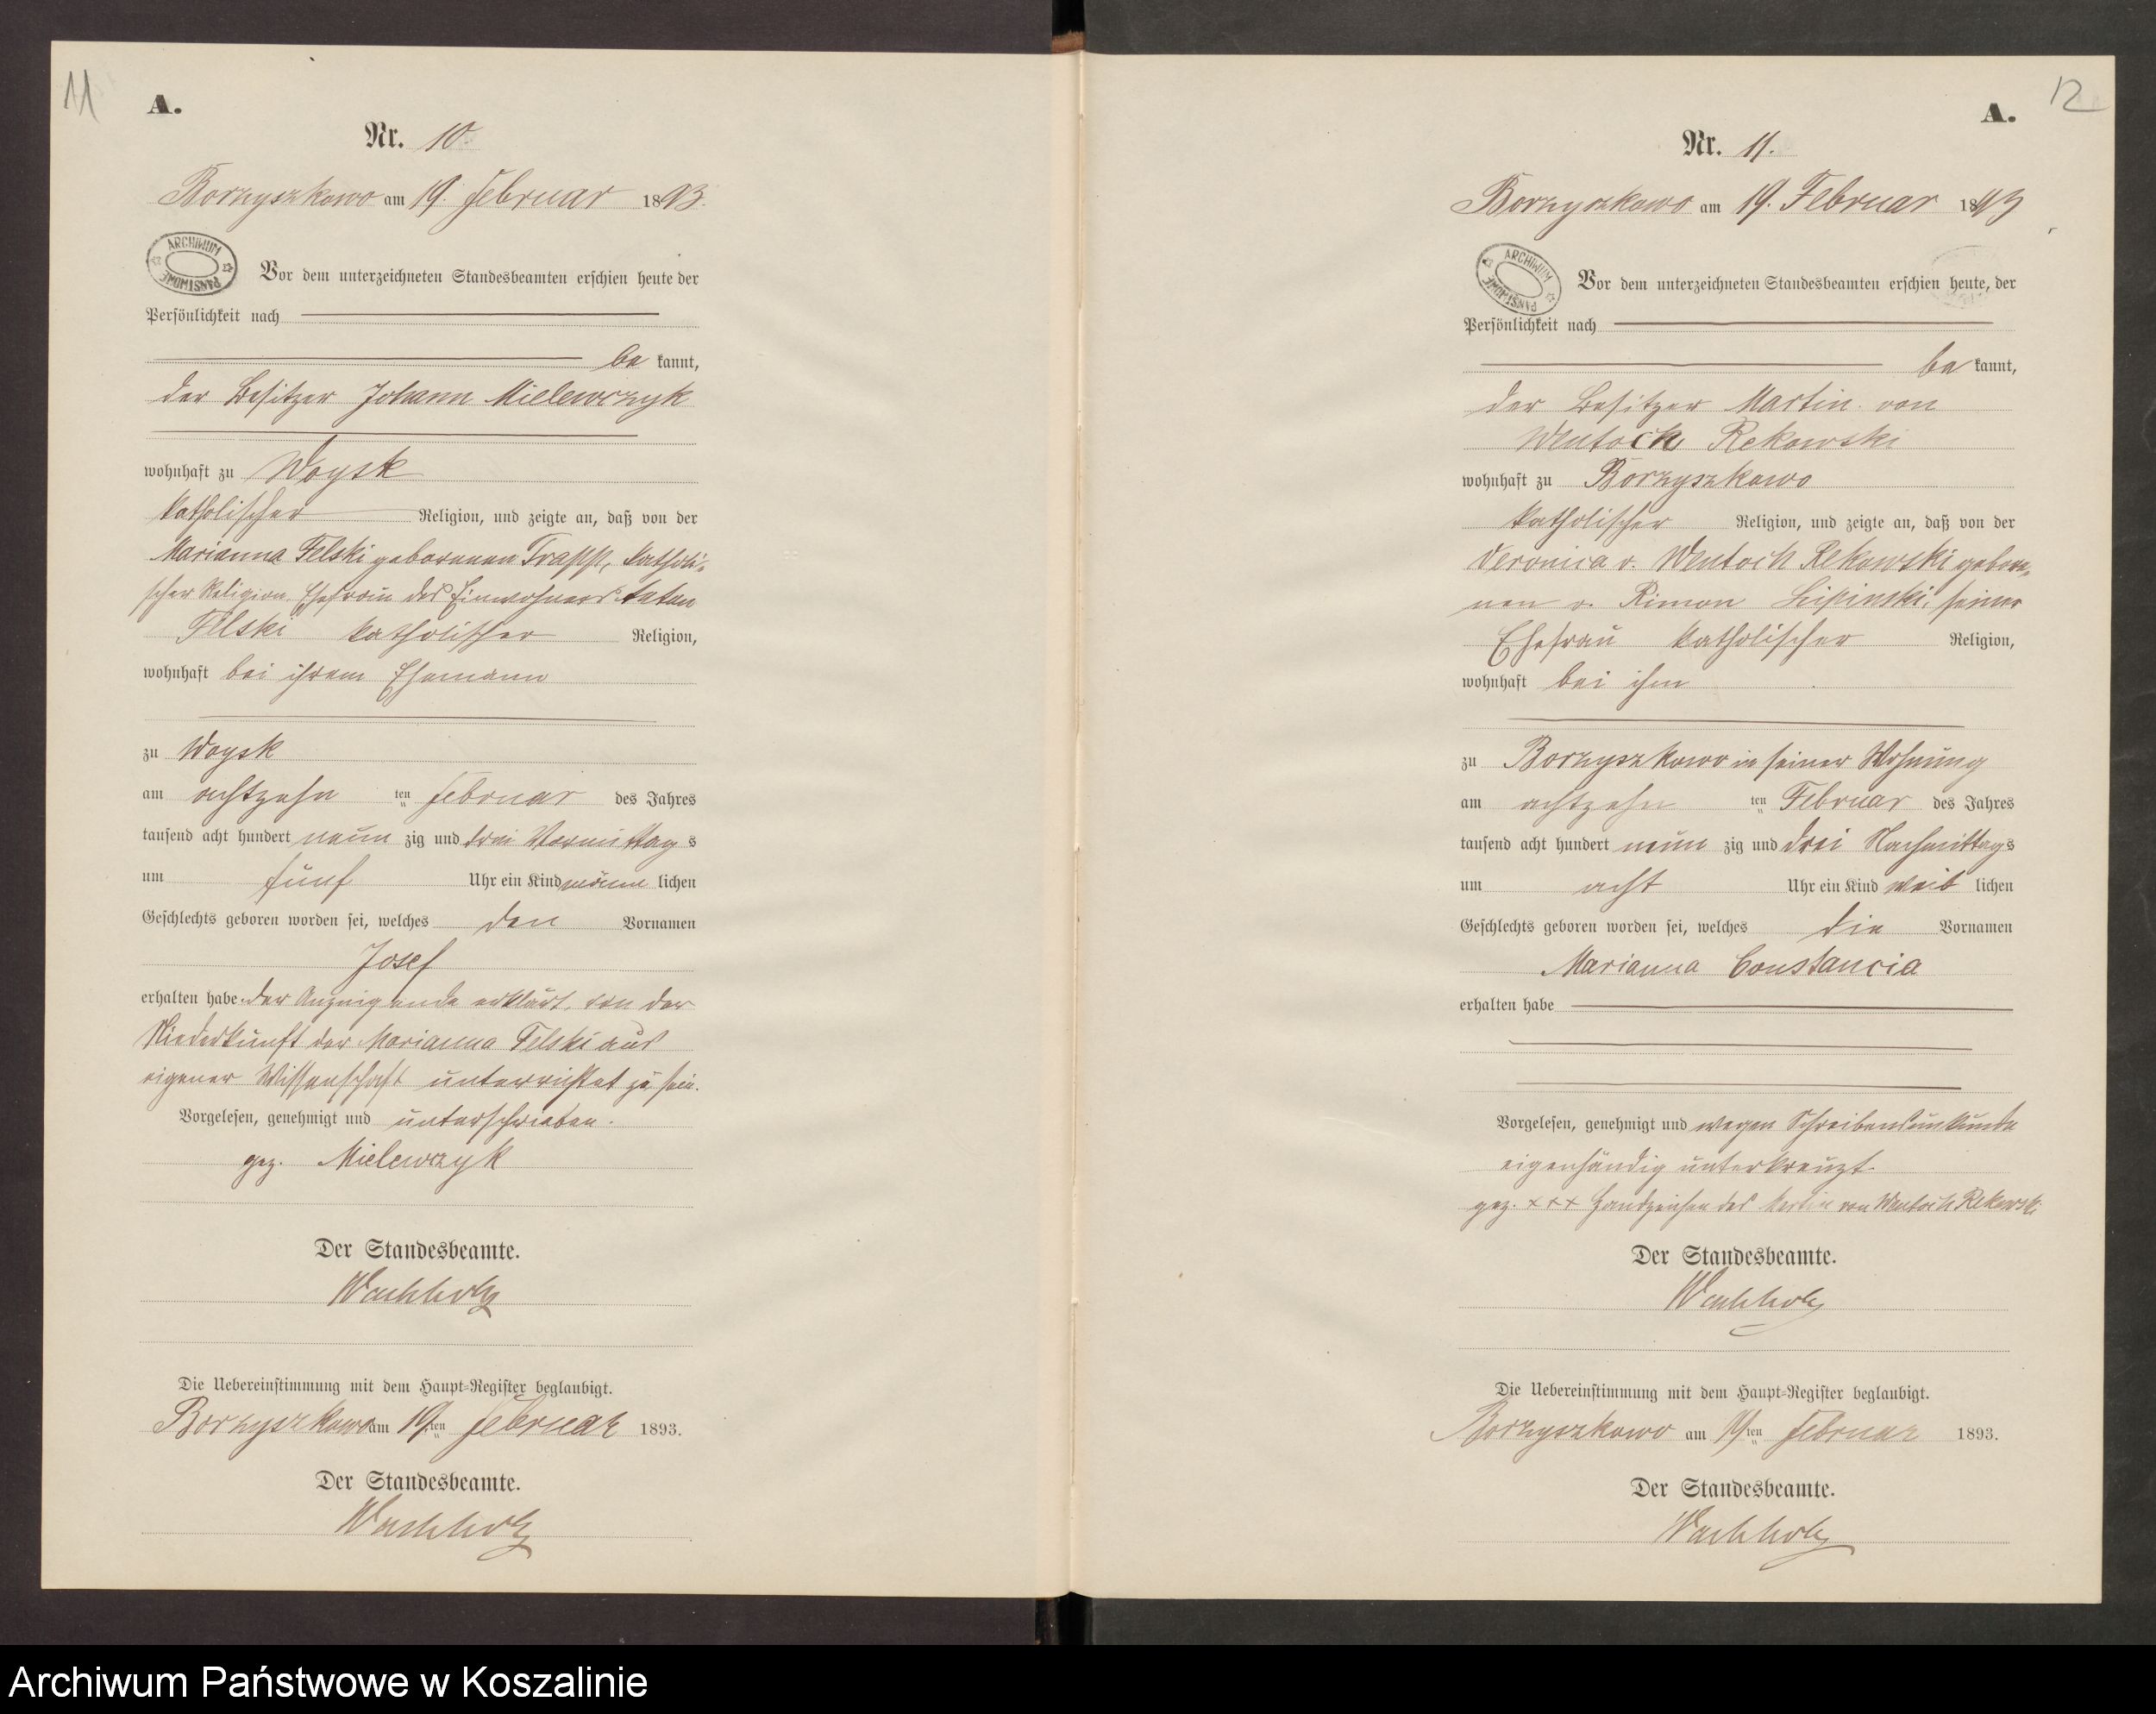 11
A.
Nr. 10.
Borzyszkowo am 19. Februar 1893.
ARCHIWUM PAŃSTWOWE
Vor dem unterzeichneten Standesbeamten erschien heute der
Persönlichkeit nach
be kannt,
der Besitzer Johann Mielewczyk
wohnhaft zu Woysk
katholischer Religion, und zeigte an, daß von der
Marianna Felski geborenen Trapp, katholi-
scher Religion Ehefrau des Einwohners Anton
Felski katholischer Religion,
wohnhaft bei ihrem Ehemann
zu Woysk
am achtzehn ten Februar des Jahres
tausend acht hundert neun zig und drei Vormittag s
um fünf Uhr ein Kind männ lichen
Geschlechts geboren worden sei, welches den Vornamen
Josef
erhalten habe. Der Anzeigende erklärt, von der
Niederkunft der Marianna Felski aus
eigener Wissenschaft unterrichtet zu sein.
Vorgelesen, genehmigt und unterschrieben.
gez. Mielewczyk
Der Standesbeamte.
Wachholz
Die Uebereinstimmung mit dem Haupt-Register beglaubigt.
Borzyszkowo am 19ten Februar 1893.
Der Standesbeamte.
Wachholz
12
A.
Nr. 11.
Borzyszkowo am 19. Februar 1893
ARCHIWUM PAŃSTWOWE
Vor dem unterzeichneten Standesbeamten erschien heute, der
Persönlichkeit nach
be kannt,
der Besitzer Martin von
Wentoch Rekowski
wohnhaft zu Borzyszkowo
katholischer Religion, und zeigte an, daß von der
Veronica v. Wentoch Rekowski gebore-
nen v. Rimon Lipinski, seiner
Ehefrau katholischer Religion,
wohnhaft bei ihm
zu Borzyszkowo in seiner Wohnung
am achtzehn ten Februar des Jahres
tausend acht hundert neun zig und drei Nachmittags
um acht Uhr ein Kind weib lichen
Geschlechts geboren worden sei, welches die Vornamen
Marianna Constancia
erhalten habe
Vorgelesen, genehmigt und wegen Schreibensunkunde
eigenhändig unterkreuzt.
gez. +++ Handzeichen des Martin von Wentoch Rekowski
Der Standesbeamte.
Wachholz
Die Uebereinstimmung mit dem Haupt-Register beglaubigt.
Borzyszkowo am 19ten Februar 1893.
Der Standesbeamte.
Wachholz
Archiwum Państwowe w Koszalinie